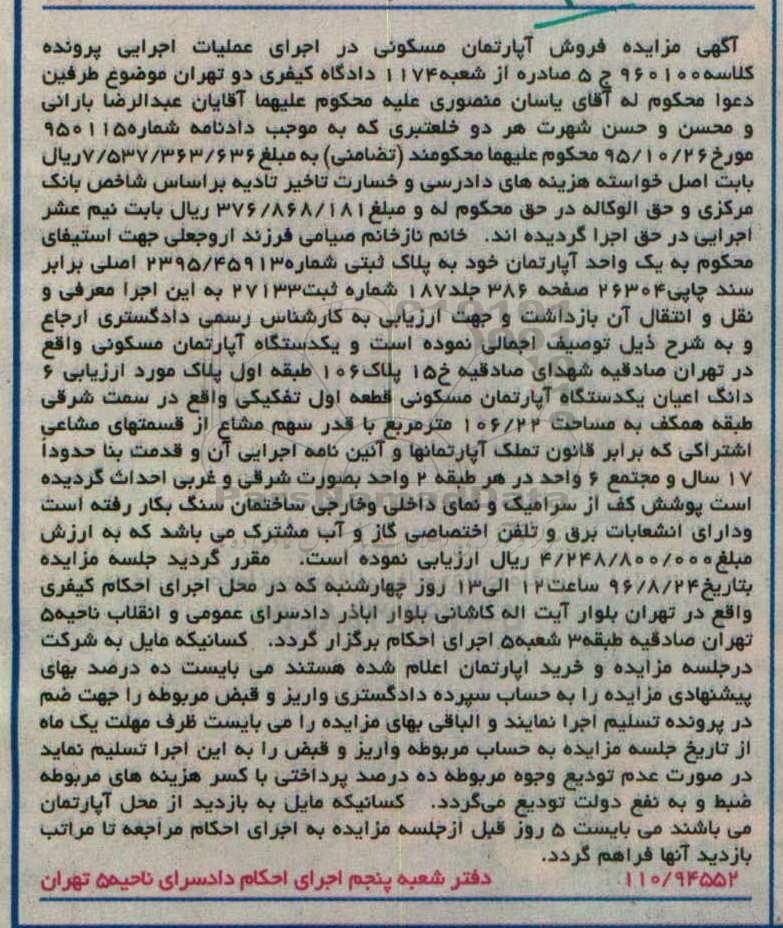 آگهی مزایده فروش آپارتمان مسکونی در اجرای عملیات اجرایی پرونده
کلاسه۹۶۰۱۰۰ ج ۵ صادره از شعبه۱۱۷۴ دادگاه کیفری دو تهران موضوع طرفین
دعوا محکوم له آقای یاسان منصوری علیه محکوم علیهما آقایان عبدالرضا بارانی
و محسن و حسن شهرت هر دو خلعتبری که به موجب دادنامه شماره۹۵۰۱۱۵
مورخ۹۵/۱۰/۲۶ محکوم علیهما محکومند (تضامنی) به مبلغ۷/۵۳۷/۳۶۳/۶۳۶ریال
بابت اصل خواسته هزینه های دادرسی و خسارت تاخیر تادیه براساس شاخص بانک
مرکزی و حق الوکاله در حق محکوم له و مبلغ۳۷۶/۸۶۸/۱۸۱ ریال بابت نیم عشر
اجرایی در حق اجرا گردیده اند. خانم نازخانم صیامی فرزند اروجعلی جهت استیفای
محکوم به یک واحد آپارتمان خود به پلاک ثبتی شماره۲۳۹۵/۴۵۹۱۳ اصلی برابر
سند چاپی۲۶۳۰۴ صفحه ۳۸۶ جلد۱۸۷ شماره ثبت۲۷۱۳۳ به این اجرا معرفی و
نقل و انتقال آن بازداشت و جهت ارزیابی به کارشناس رسمی دادگستری ارجاع
و به شرح ذیل توصیف اجمالی نموده است و یکدستگاه آپارتمان مسکونی واقع
در تهران صادقیه شهدای صادقیه خ۱۵ پلاک۱۰۶ طبقه اول پلاک مورد ارزیابی ۶
دانگ اعیان یکدستگاه آپارتمان مسکونی قطعه اول تفکیکی واقع در سمت شرقی
طبقه همکف به مساحت ۱۰۶/۲۲ مترمربع با قدر سهم مشاع از قسمتهای مشاعی
اشتراکی که برابر قانون تملک آپارتمانها و آئین نامه اجرایی آن و قدمت بنا حدوداً
۱۷ سال و مجتمع ۶ واحد در هر طبقه ۲ واحد بصورت شرقی و غربی احداث گردیده
است پوشش کف از سرامیک و نمای داخلی وخارجی ساختمان سنگ بکار رفته است
ودارای انشعابات برق و تلفن اختصاصی گاز و آب مشترک می باشد که به ارزش
مبلغ۴/۲۴۸/۸۰۰/۰۰۰ ریال ارزیابی نموده است. مقرر گردید جلسه مزایده
بتاریخ۹۶/۸/۲۴ ساعت۱۲ الی۱۳ روز چهارشنبه که در محل اجرای احکام کیفری
واقع در تهران بلوار آیت اله کاشانی بلوار اباذر دادسرای عمومی و انقلاب ناحیه۵
تهران صادقیه طبقه۳ شعبه۵ اجرای احکام برگزار گردد. کسانیکه مایل به شرکت
درجلسه مزایده و خرید اپارتمان اعلام شده هستند می بایست ده درصد بهای
پیشنهادی مزایده را به حساب سپرده دادگستری واریز و قبض مربوطه را جهت ضم
در پرونده تسلیم اجرا نمایند و الباقی بهای مزایده را می بایست ظرف مهلت یک ماه
از تاریخ جلسه مزایده به حساب مربوطه واریز و قبض را به این اجرا تسلیم نماید
در صورت عدم تودیع وجوه مربوطه ده درصد پرداختی با کسر هزینه های مربوطه
ضبط و به نفع دولت تودیع می‌گردد. کسانیکه مایل به بازدید از محل آپارتمان
می باشند می بایست ۵ روز قبل ازجلسه مزایده به اجرای احکام مراجعه تا مراتب
بازدید آنها فراهم گردد.
۱۱۰/۹۴۵۵۲ دفتر شعبه پنجم اجرای احکام دادسرای ناحیه۵ تهران